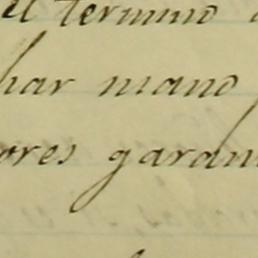 el termino
har mano
ores garan